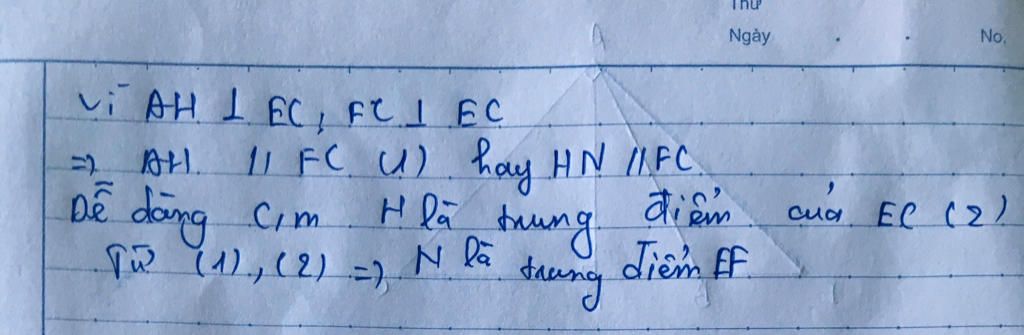 Thứ
Ngày . . No.
Vì AH ⊥ EC, FC ⊥ EC
=> AH // FC (1) hay HN // FC
Dễ dàng C/m H là trung điểm của EC (2)
Từ (1), (2) => N là trung điểm EF